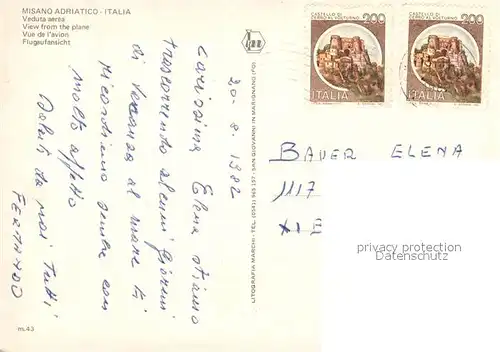 MISANO ADRIATICO - ITALIA
Veduta aerea
View from the plane
Vue de l'avion
Flugaufansicht
20-8-1982
Carissima Elena stiamo
trascorrendo alcuni giorni
di vacanza al mare ti
ricordiamo sempre con
molto affetto
Saluti da noi tutti
FERNANDO
m.43
LITOGRAFIA MARCHI - TEL. (0541) 965 157 - SAN GIOVANNI IN MARIGNANO (FO)
CASTELLO DI
CERRO AL VOLTURNO
200
ITALIA
CASTELLO DI
CERRO AL VOLTURNO
200
ITALIA
BAUER ELENA
1117
privacy protection
OldThing.de